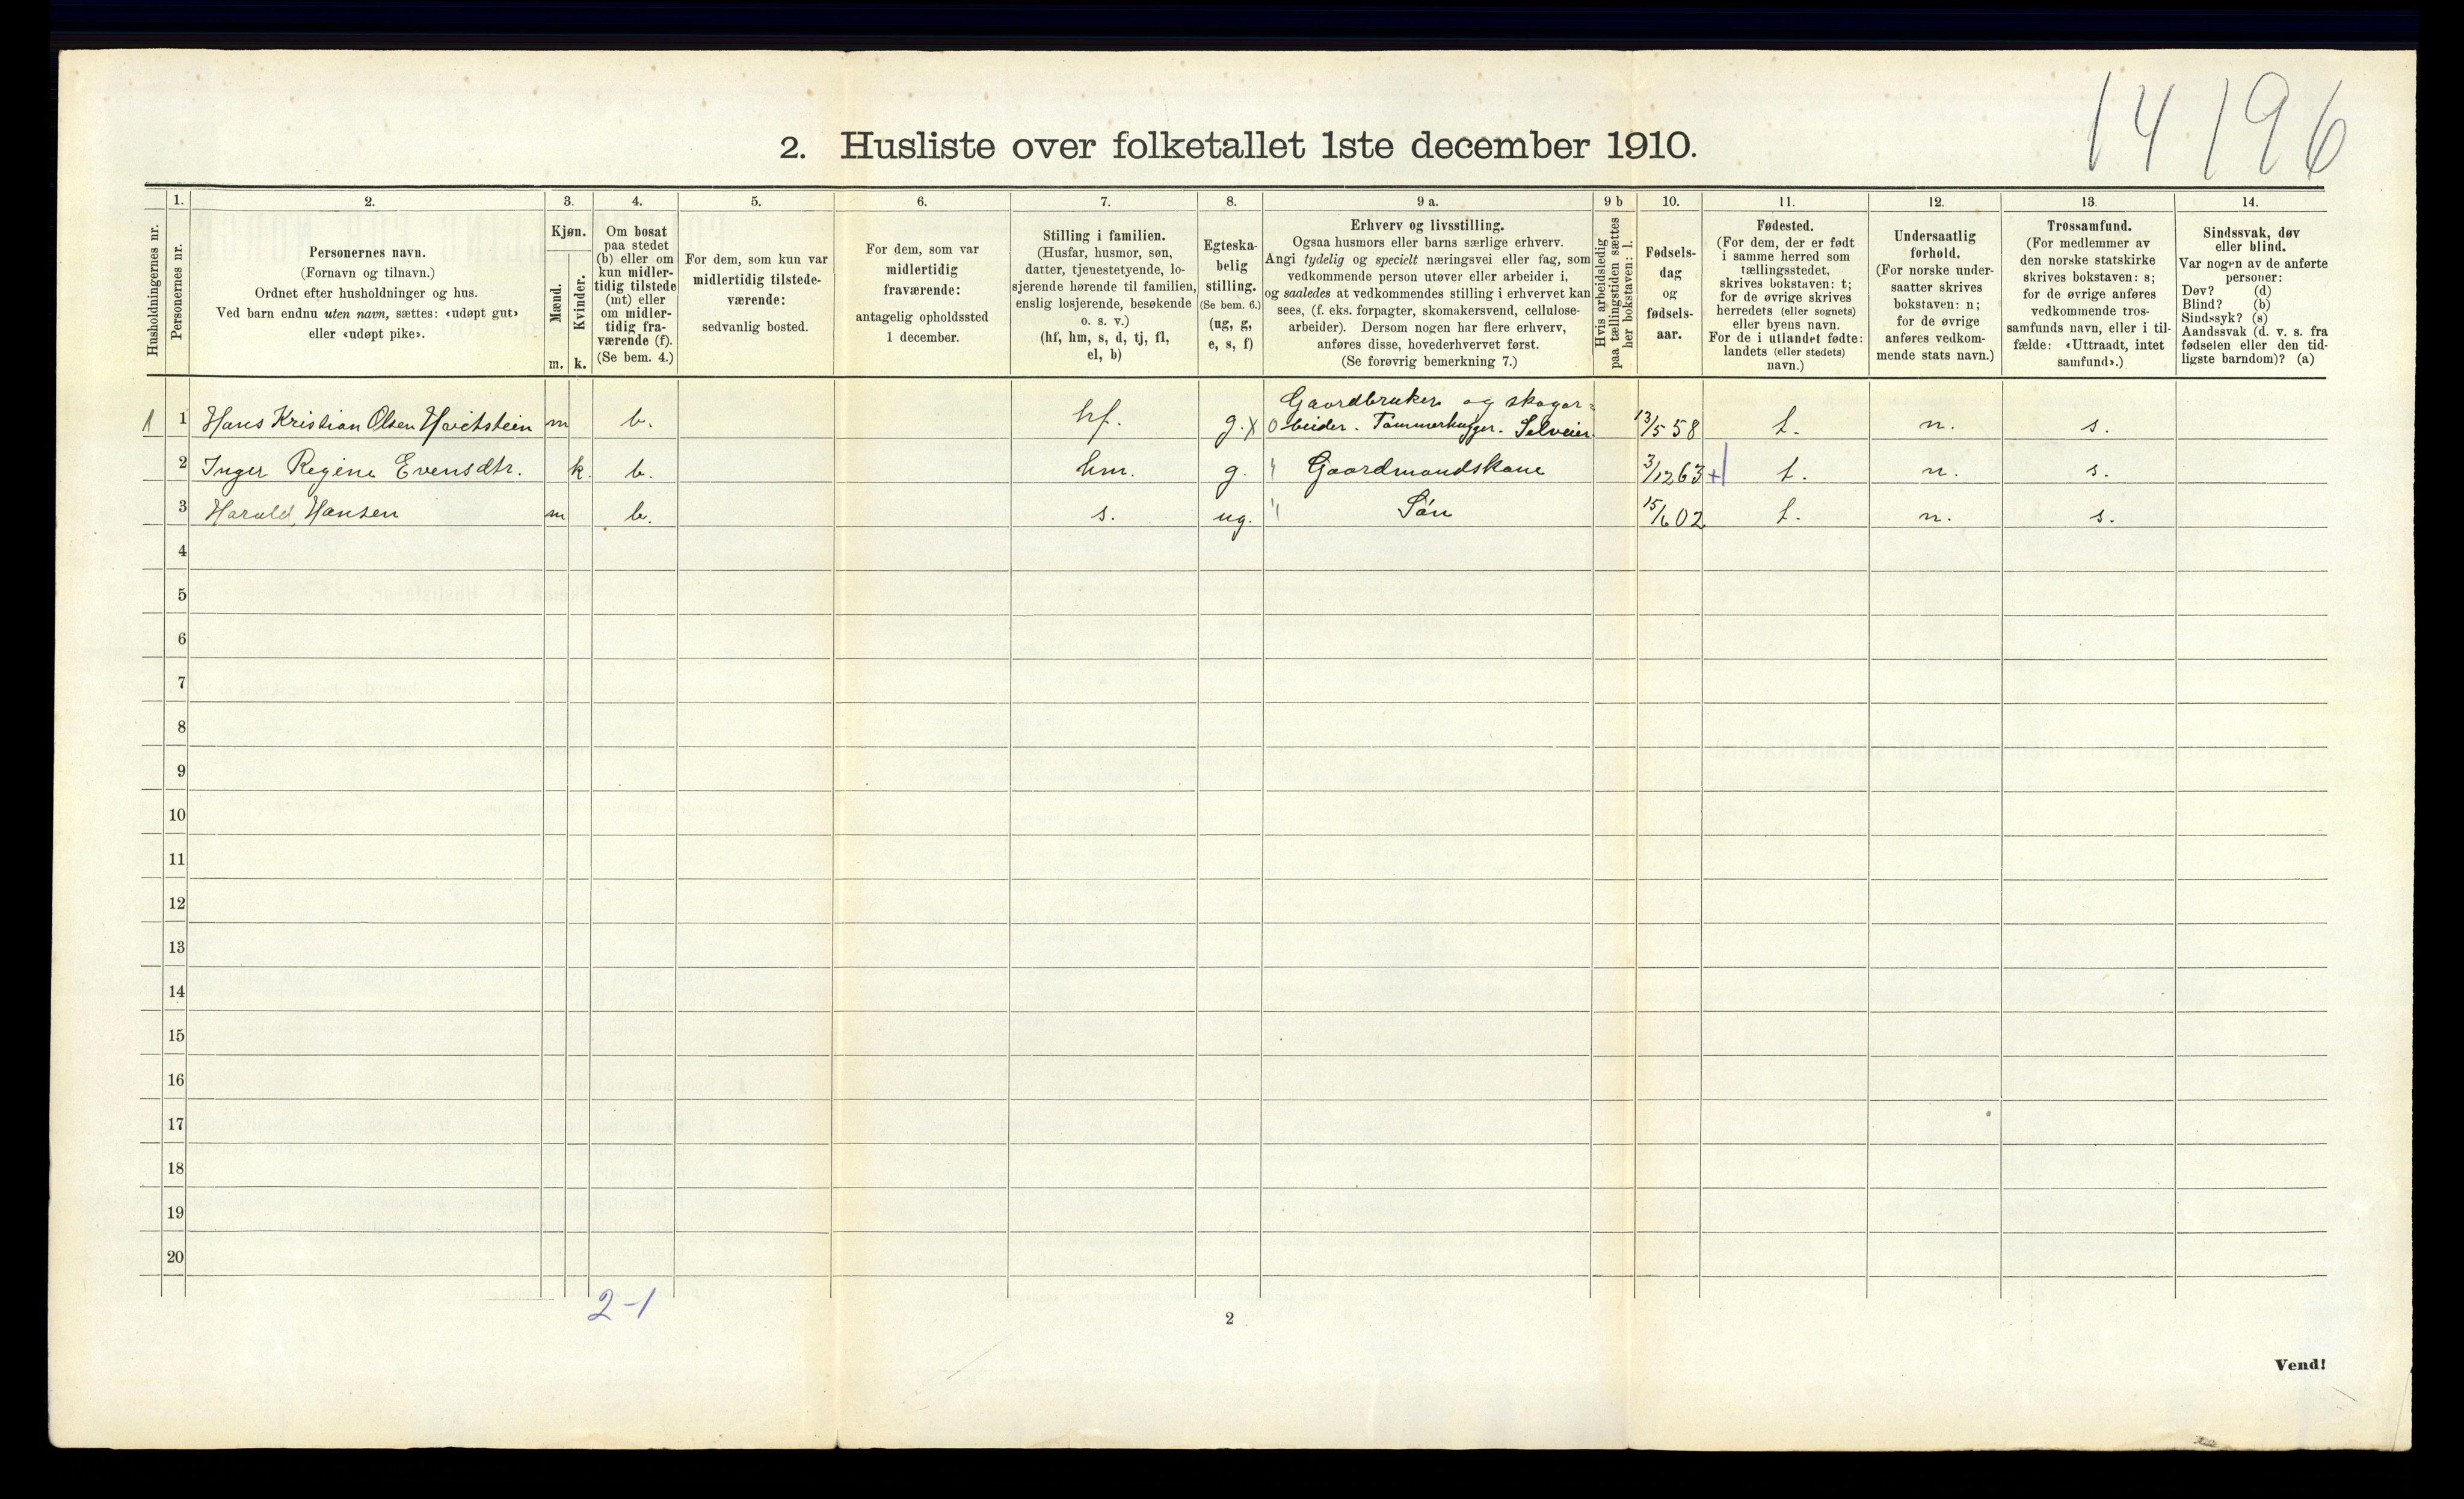 14 196
2. Husliste over folketallet 1ste december 1910.
Husholdningernes nr.
1.
Personernes nr.
2.
Personernes navn.
(Fornavn og tilnavn.)
Ordnet efter husholdninger og hus.
Ved barn endnu uten navn, sættes: «udøpt gut»
eller «udøpt pike».
3.
Kjøn.
Mænd.
Kvinder.
m. k.
4.
Om bosat
paa stedet
(b) eller om
kun midler-
tidig tilstede
(mt) eller
om midler-
tidig fra-
værende (f).
(Se bem. 4.)
5.
For dem, som kun var
midlertidig tilstede-
værende:
sedvanlig bosted.
6.
For dem, som var
midlertidig
fraværende:
antagelig opholdssted
1 december.
7.
Stilling i familien.
(Husfar, husmor, søn,
datter, tjenestetyende, lo-
sjerende hørende til familien,
enslig losjerende, besøkende
o. s. v.)
(hf, hm, s, d, tj, fl,
el, b)
8.
Egteska-
belig
stilling.
(Se bem. 6.)
(ug, g,
e, s, f)
9 a.
Erhverv og livsstilling.
Ogsaa husmors eller barns særlige erhverv.
Angi tydelig og specielt næringsvei eller fag, som
vedkommende person utøver eller arbeider i,
og saaledes at vedkommendes stilling i erhvervet kan
sees, (f. eks. forpagter, skomakersvend, cellulose-
arbeider). Dersom nogen har flere erhverv,
anføres disse, hovederhvervet først.
(Se forøvrig bemerkning 7.)
9 b
Hvis arbeidsledig
paa tællingstiden sættes
her bokstaven: l.
10.
Fødsels-
dag
og
fødsels-
aar.
11.
Fødested.
(For dem, der er født
i samme herred som
tællingsstedet,
skrives bokstaven: t;
for de øvrige skrives
herredets (eller sognets)
eller byens navn.
For de i utlandet fødte:
landets (eller stedets)
navn.)
12.
Undersaatlig
forhold.
(For norske under-
saatter skrives
bokstaven: n;
for de øvrige
anføres vedkom-
mende stats navn.)
13.
Trossamfund.
(For medlemmer av
den norske statskirke
skrives bokstaven: s;
for de øvrige anføres
vedkommende tros-
samfunds navn, eller i til-
fælde: «Uttraadt, intet
samfund».)
14.
Sindssvak, døv
eller blind.
Var nogen av de anførte
personer:
Døv? (d)
Blind? (b)
Sindssyk? (s)
Aandssvak (d. v. s. fra
fødselen eller den tid-
ligste barndom)? (a)
Gaardbruker og skogar-
1 1 Hans Kristian Olsen m b. hf. g. x 0 beider. Tømmerhugger. Selveier. 13/5 58 t. n. s.
2 Inger Regine Evensdtr. k. b. hm. g. " Gaardmandskone 3/12 63 + t. n. s.
3 Harald Hansen m b. s. ug. " Søn 15/6 02 t. n. s.
4
5
6
7
8
9
10
11
12
13
14
15
16
17
18
19
20
2-1
2
Vend!